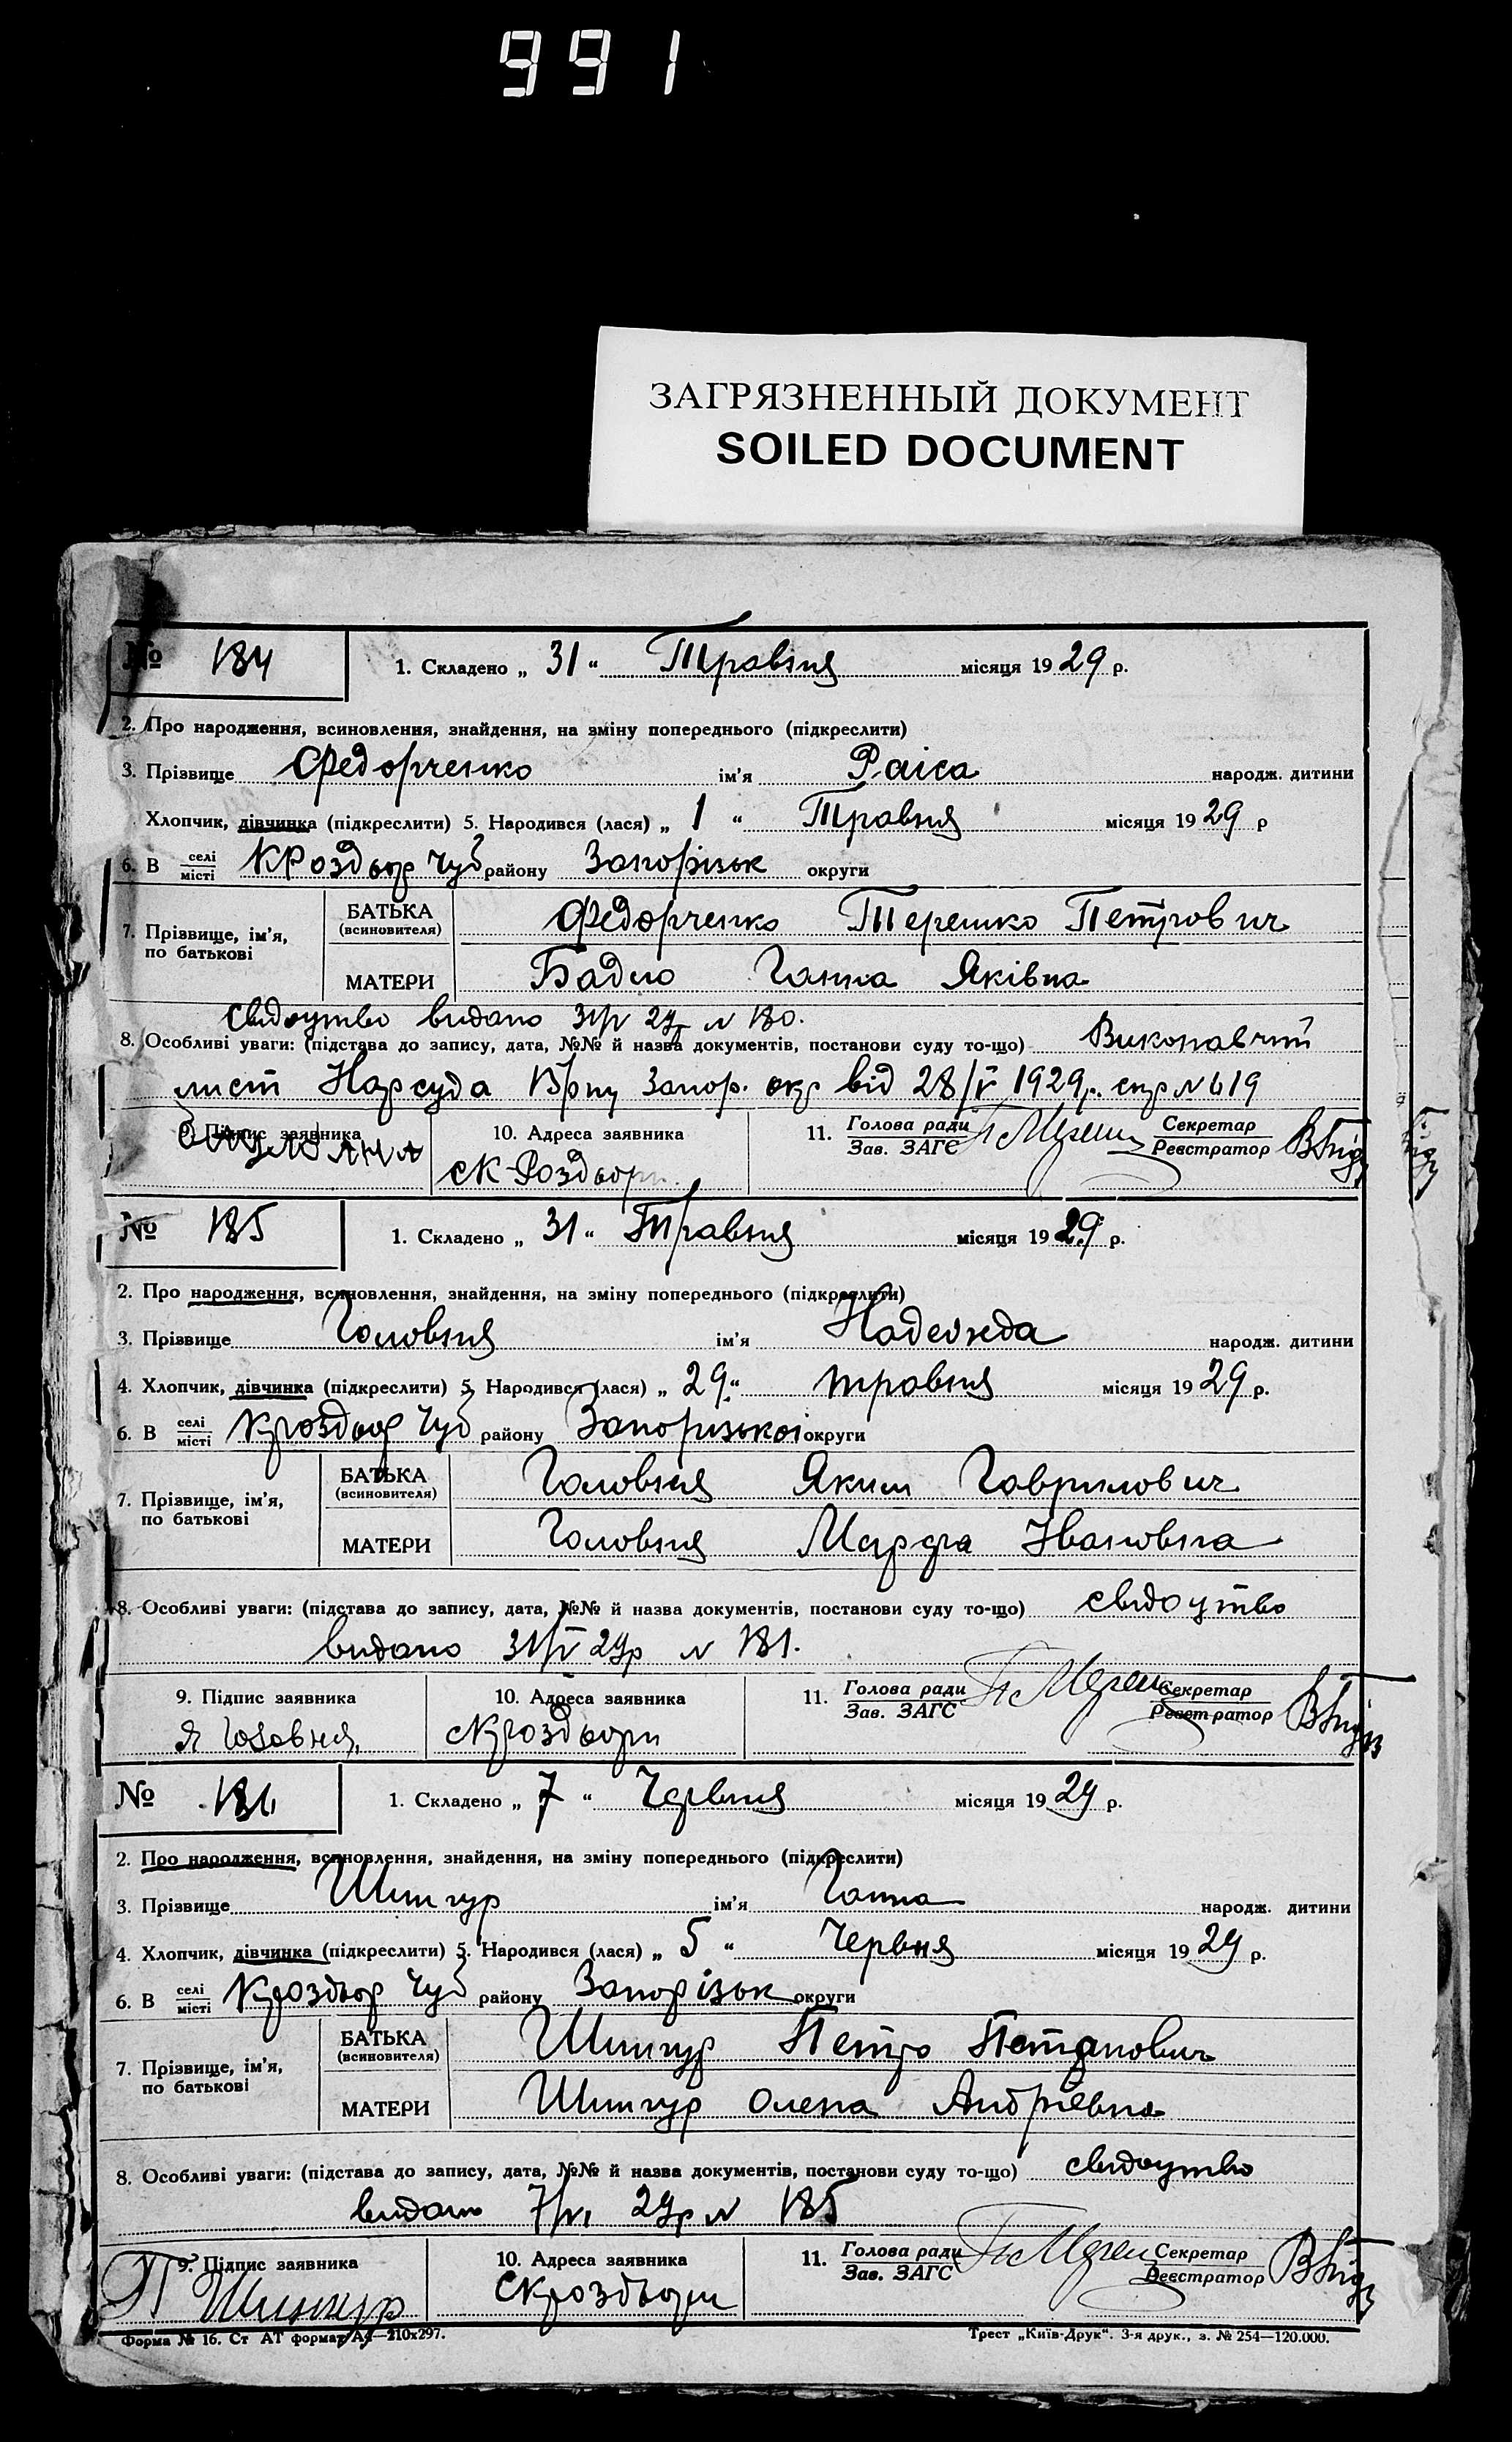 991
ЗАГРЯЗНЕННЫЙ ДОКУМЕНТ
SOILED DOCUMENT
№ 184 1. Складено „ 31 “ Травня місяця 1929 р.
2. Про народження, всиновлення, знайдення, на зміну попереднього (підкреслити)
3. Прізвище Федорченко ім’я Раіса народж. дитини
Хлопчик, дівчинка (підкреслити) 5. Народився (лася) „ 1 “ Травня місяця 1929 р
6. В селі місті КРоздор Чуб району Запорізьк округи
7. Прізвище, ім’я, по батькові БАТЬКА (всиновителя) Федорченко Терешко Петрович
МАТЕРИ Бадло Ганна Яківна
свідоцтво видано 31/V 29р N 180.
8. Особливі уваги: (підстава до запису, дата, №№ й назва документів, постанови суду то-що) Виконавчий
лист Нарсуда Запор. окр від 28/V 1929р. N 619
9. Підпис заявника 10. Адреса заявника 11. Голова ради Зав. ЗАГС Секретар Реєстратор
сК-Роздори
№ 185 1. Складено „ 31 “ Травня місяця 1929 р.
2. Про народження, всиновлення, знайдення, на зміну попереднього (підкреслити)
3. Прізвище Головня ім’я Надежда народж. дитини
4. Хлопчик, дівчинка (підкреслити) 5. Народився (лася) „ 29 “ травня місяця 1929 р.
6. В селі місті Кроздор Чуб району Запоризькоі округи
7. Прізвище, ім’я, по батькові БАТЬКА (всиновителя) Головня Яким Гаврилович
МАТЕРИ Головня Марфа Ивановна
8. Особливі уваги: (підстава до запису, дата, №№ й назва документів, постанови суду то-що) свідоцтво
видано 31/V 29р N 181.
9. Підпис заявника 10. Адреса заявника 11. Голова ради Зав. ЗАГС Секретар Реєстратор
Я Головня, сКроздори
№ 186 1. Складено „ 7 “ Червня місяця 1929 р.
2. Про народження, всиновлення, знайдення, на зміну попереднього (підкреслити)
3. Прізвище ім’я Ганна народж. дитини
4. Хлопчик, дівчинка (підкреслити) 5. Народився (лася) „ 5 “ Червня місяця 1929 р.
6. В селі місті Кроздор Чуб району Запорізьк округи
7. Прізвище, ім’я, по батькові БАТЬКА (всиновителя) Петро
МАТЕРИ Олена Андріевна
8. Особливі уваги: (підстава до запису, дата, №№ й назва документів, постанови суду то-що) свідоцтво
видано 7/VI 29р N 185
9. Підпис заявника 10. Адреса заявника 11. Голова ради Зав. ЗАГС Секретар Реєстратор
Скроздори
Форма № 16. Ст АТ формат А4—210х297. Трест „Київ-Друк“. 3-я друк., з. № 254—120.000.